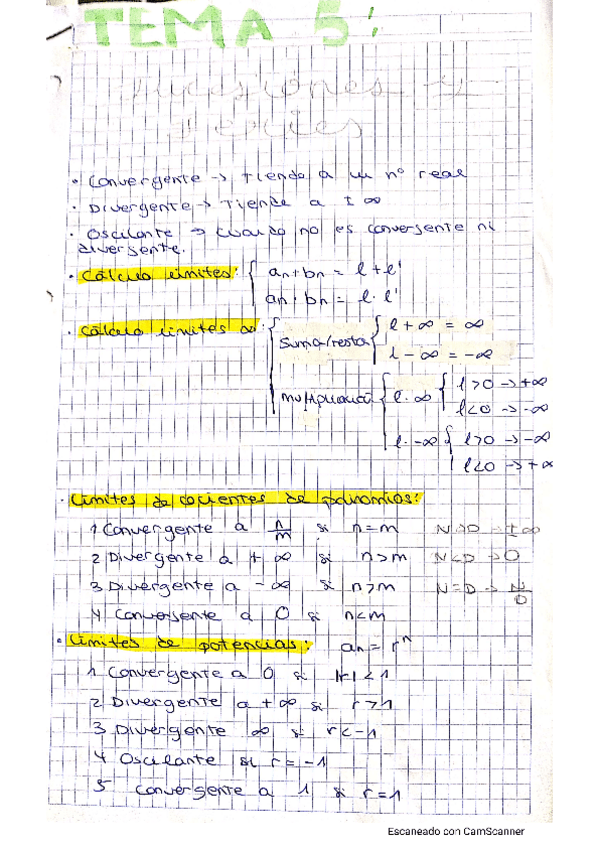 TEMA 5:
Sucesiones y
series
· Convergente → Tiende a un nº real
· Divergente → Tiende a ± ∞
· Oscilante → Cuando no es convergente ni
divergente.
· Cálculo límites: { an + bn = l + l'
an · bn = l · l'
· Cálculo límites ∞: { Suma/resta { l + ∞ = ∞
l - ∞ = -∞
multiplicación { l · ∞ { l > 0 → +∞
l < 0 → -∞
l · -∞ { l > 0 → -∞
l < 0 → +∞
· Límites de cocientes de polinomios:
1 Convergente a n/m si n = m N > D → ± ∞
2 Divergente a + ∞ si n > m N < D → 0
3 Divergente a - ∞ si n > m N = D → N/D
4 Convergente a 0 si n < m
· Límites de potencias: an = rⁿ
1 Convergente a 0 si |r| < 1
2 Divergente a + ∞ si r > 1
3 Divergente ∞ si r < -1
4 Oscilante si r = -1
5 Convergente a 1 si r = 1
Escaneado con CamScanner